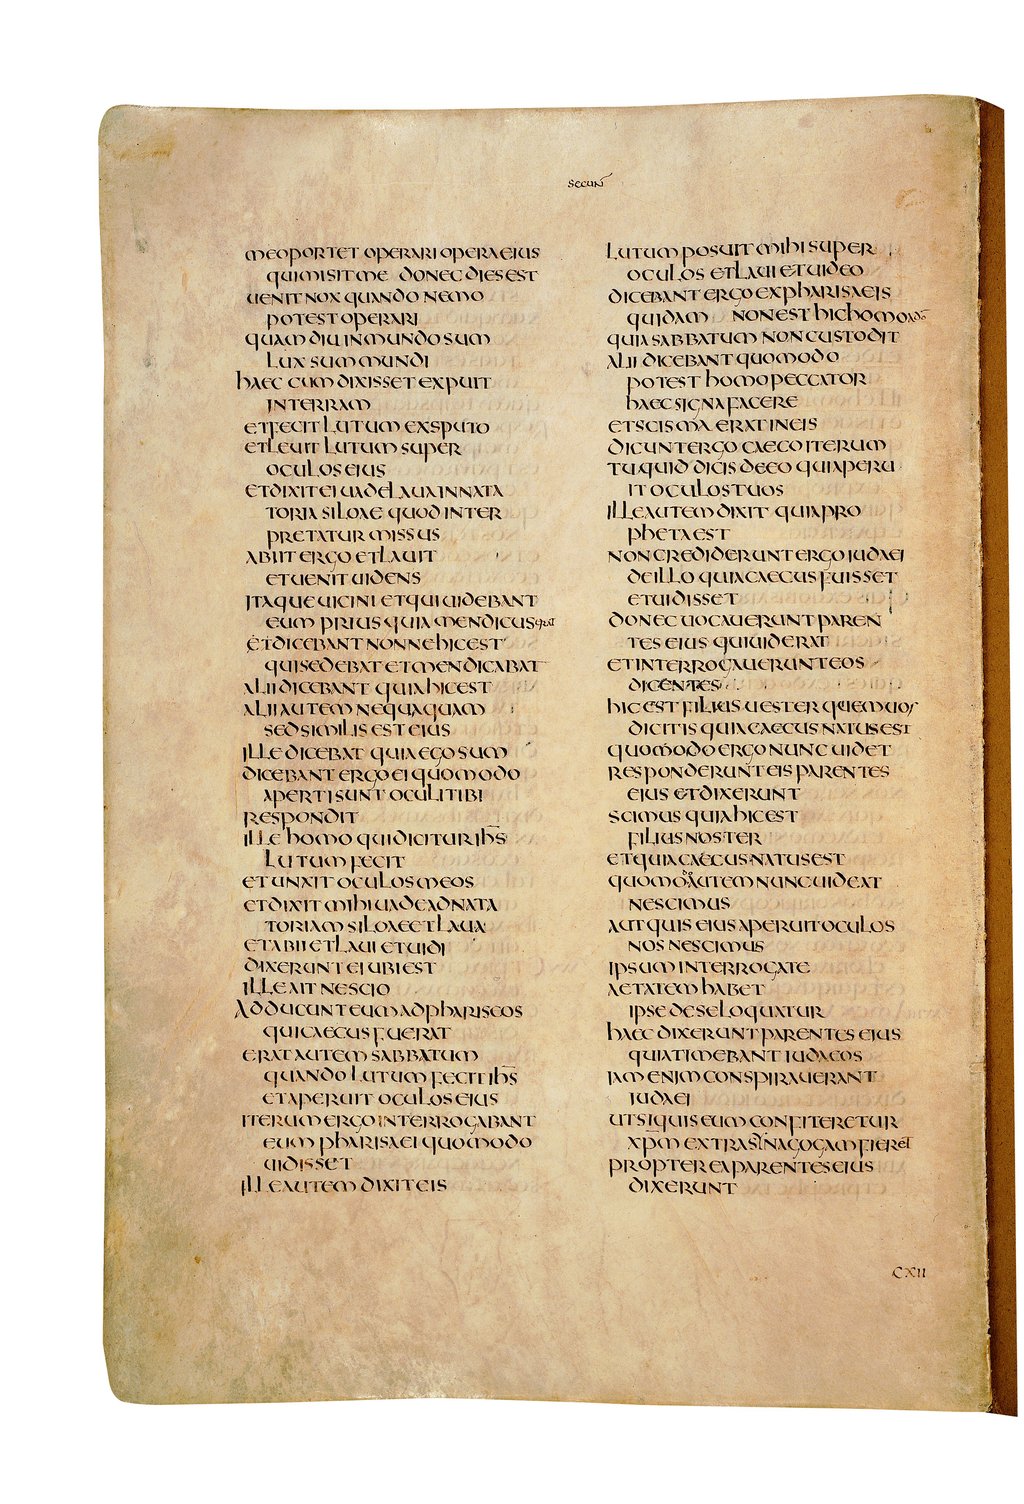 SECUN
MEOPORTET OPERARI OPERA EIUS
QUI MISIT ME DONEC DIES EST
UENIT NOX QUANDO NEMO
POTEST OPERARI
QUAM DIU IN MUNDO SUM
LUX SUM MUNDI
HAEC CUM DIXISSET EXPUIT
IN TERRAM
ET FECIT LUTUM EX SPUTO
ET LEUIT LUTUM SUPER
OCULOS EIUS
ET DIXIT EI UADE LAUA IN NATA
TORIA SILOAE QUOD INTER
PRETATUR MISSUS
ABIIT ERGO ET LAUIT
ET UENIT UIDENS
ITAQUE UICINI ET QUI UIDEBANT
EUM PRIUS QUIA MENDICUS ERAT
ET DICEBANT NONNE HIC EST
QUI SEDEBAT ET MENDICABAT
ALII DICEBANT QUIA HIC EST
ALII AUTEM NEQUAQUAM
SED SIMILIS EST EIUS
ILLE DICEBAT QUIA EGO SUM
DICEBANT ERGO EI QUOMODO
APERTI SUNT OCULI TIBI
RESPONDIT
ILLE HOMO QUI DICITUR IHS
LUTUM FECIT
ET UNXIT OCULOS MEOS
ET DIXIT MIHI UADE AD NATA
TORIAM SILOAE ET LAUA
ET ABII ET LAUI ET UIDI
DIXERUNT EI UBI EST
ILLE AIT NESCIO
ADDUCUNT EUM AD PHARISEOS
QUI CAECUS FUERAT
ERAT AUTEM SABBATUM
QUANDO LUTUM FECIT IHS
ET APERUIT OCULOS EIUS
ITERUM ERGO INTERROGABANT
EUM PHARISAEI QUOMODO
UIDISSET
ILLE AUTEM DIXIT EIS
LUTUM POSUIT MIHI SUPER
OCULOS ET LAUI ET UIDEO
DICEBANT ERGO EX PHARISAEIS
QUIDAM NON EST HIC HOMO A DO
QUIA SABBATUM NON CUSTODIT
ALII DICEBANT QUOMODO
POTEST HOMO PECCATOR
HAEC SIGNA FACERE
ET SCISMA ERAT IN EIS
DICUNT ERGO CAECO ITERUM
TU QUID DICIS DE EO QUI APERU
IT OCULOS TUOS
ILLE AUTEM DIXIT QUIA PRO
PHETA EST
NON CREDIDERUNT ERGO IUDAEI
DE ILLO QUIA CAECUS FUISSET
ET UIDISSET
DONEC UOCAUERUNT PAREN
TES EIUS QUI UIDERAT
ET INTERROGAUERUNT EOS
DICENTES
HIC EST FILIUS UESTER QUEM UOS
DICITIS QUIA CAECUS NATUS EST
QUOMODO ERGO NUNC UIDET
RESPONDERUNT EIS PARENTES
EIUS ET DIXERUNT
SCIMUS QUIA HIC EST
FILIUS NOSTER
ET QUIA CAECUS NATUS EST
QUOMODO AUTEM NUNC UIDEAT
NESCIMUS
AUT QUIS EIUS APERUIT OCULOS
NOS NESCIMUS
IPSUM INTERROGATE
AETATEM HABET
IPSE DE SE LOQUATUR
HAEC DIXERUNT PARENTES EIUS
QUIA TIMEBANT IUDAEOS
IAM ENIM CONSPIRAUERANT
IUDAEI
UT SI QUIS EUM CONFITERETUR
XPM EXTRA SYNAGOGAM FIERET
PROPTEREA PARENTES EIUS
DIXERUNT
CXII